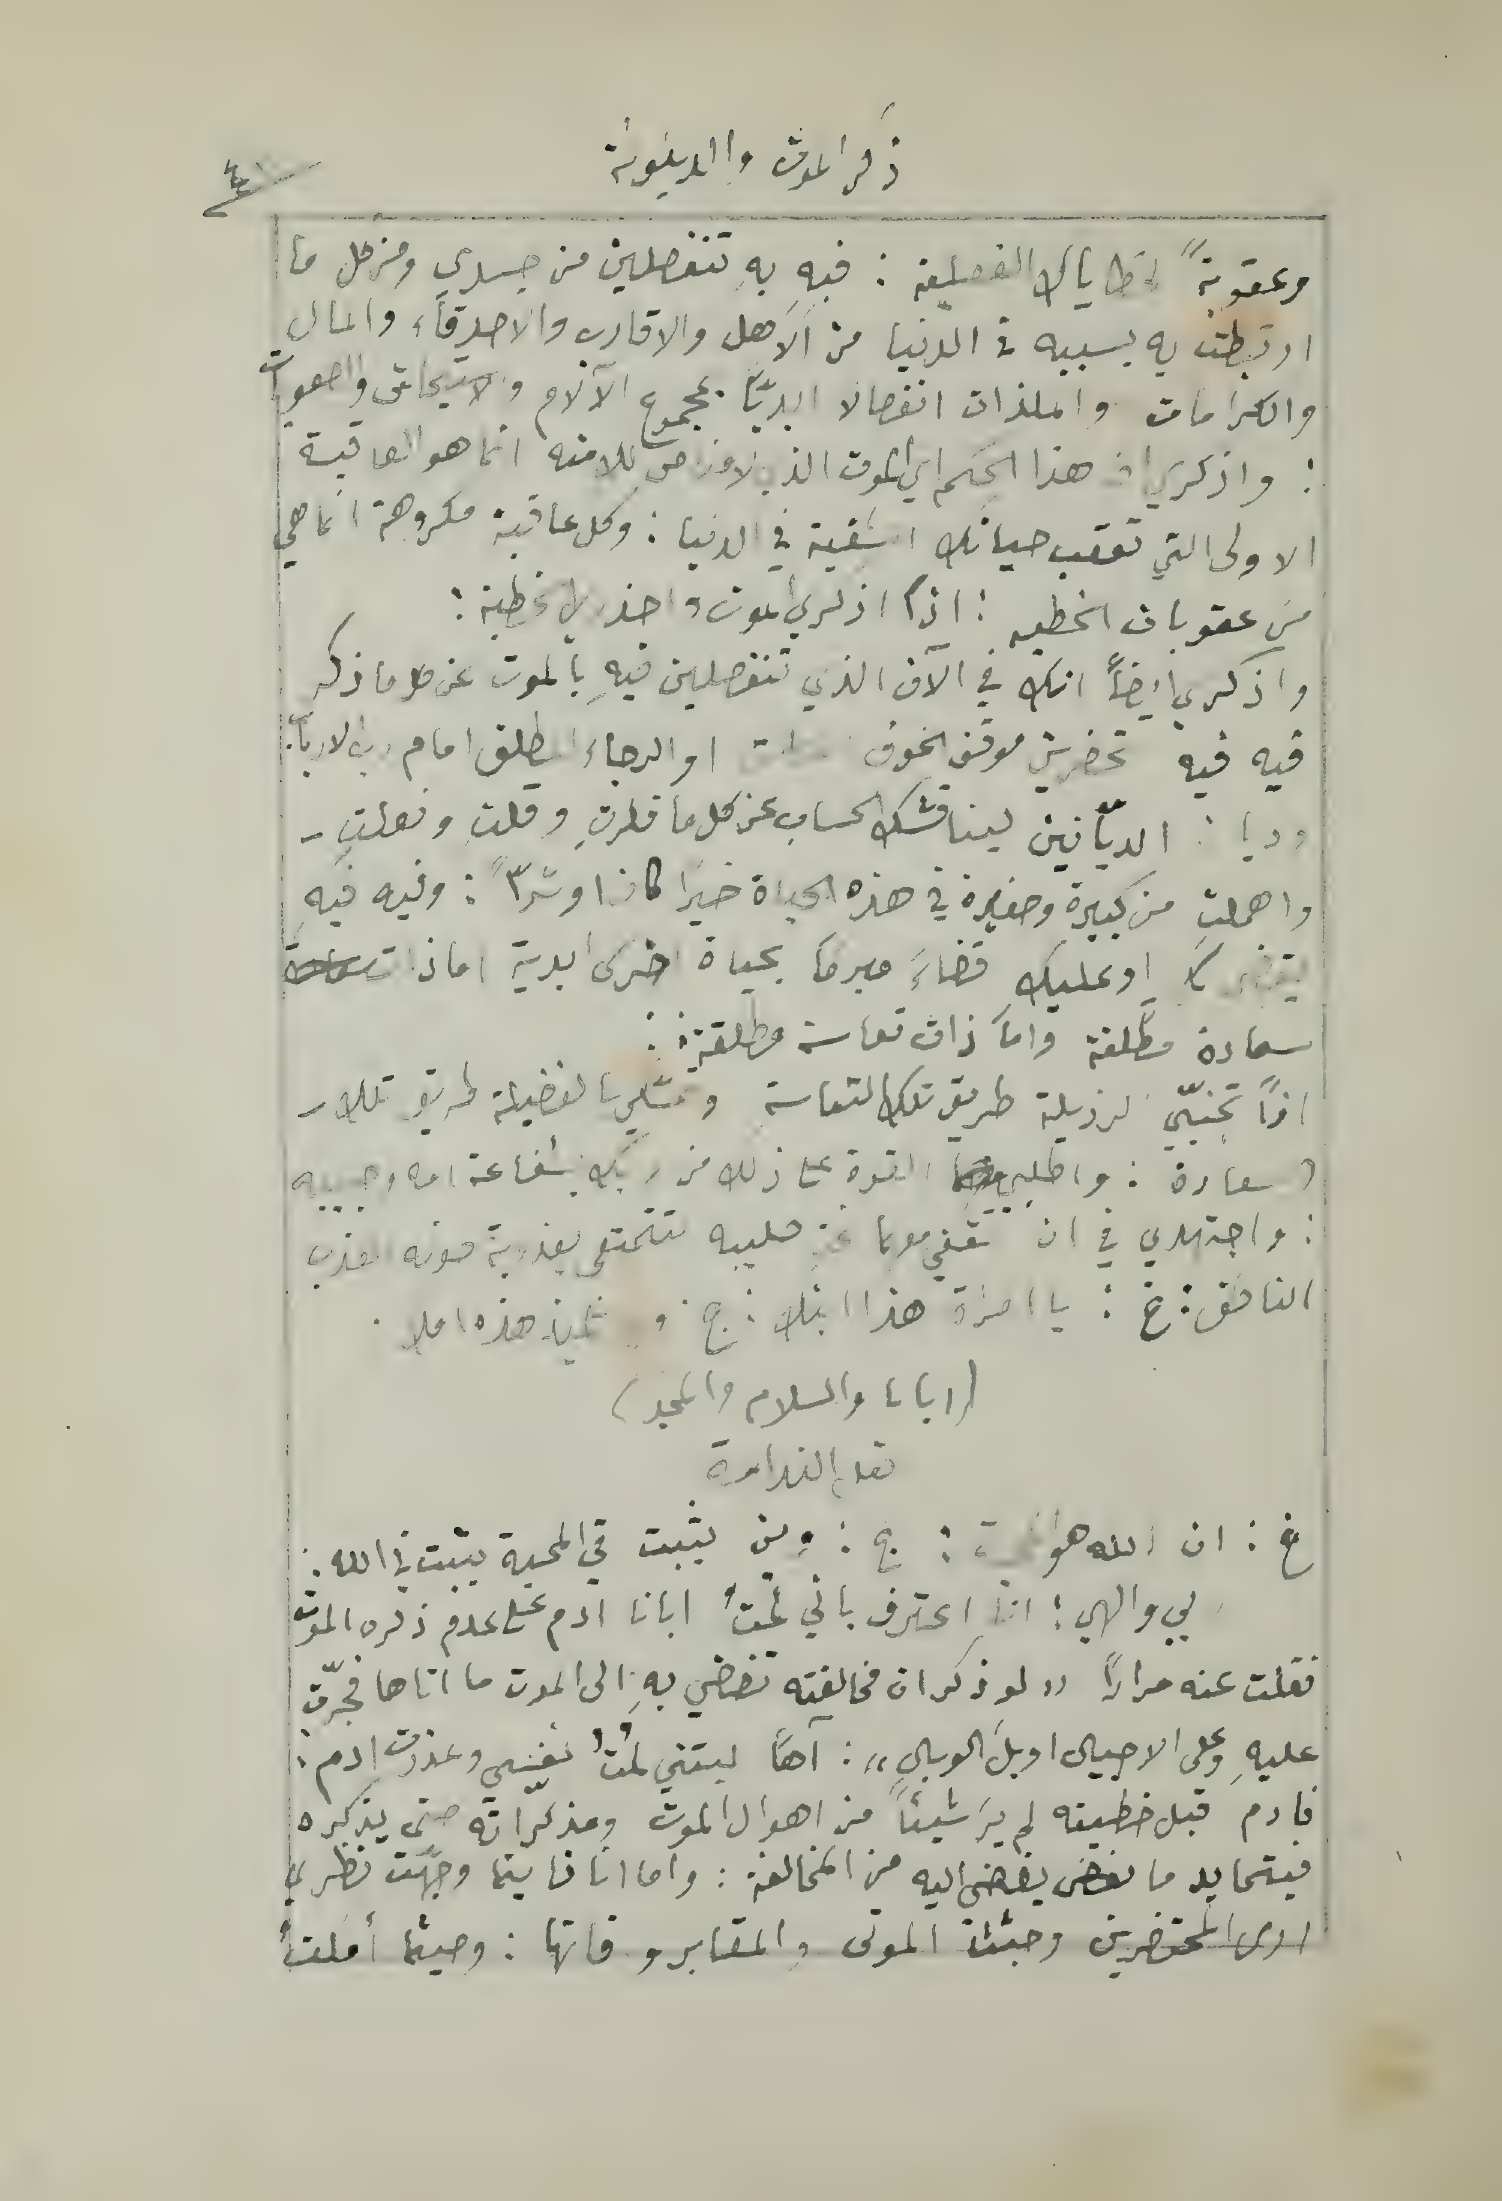 ذكر الموت والدينونة
وعقوبةً لخطاياك الفصلية : فبه به تنفصلين من جسدي ومن كل ما
ارتبطت به بسببه في الدنيا من الاهل والاقارب والاصدقاء والمال
والكرامات والملذات انفصالا ابديًا بمجموع الآلام والصعوبات
: واذكري ان هذا الحكم اي الموت الذي لا مناص لك منه انما هو العاقبة
الاولى التي تعقب حياتك الشقية في الدنيا : وكل عاقبة مكروهة انما هي
من عقوبات الخطيه : اذًا اذكري الموت واحذري الخطية :
واذكري ايضًا انك في الآن الذي تنفصلين فيهِ بالموت عن كل ما ذكر
فيه فيه تحضرين موقف الخوف او الرجاء المطلق امام رب الارباب
وديان الديّانين ليناقشك الحساب عن كل ما فكرتِ وقلتِ وفعلتِ -
واهملتِ من كبيرة وصغيرة في هذه الحياة خيرًا كان او شرًّا : وفيه فيهِ
يقضي لك او عليك قضاءً مبرمًا بحياة اخرى ابدية اما ذات
سعادة مطلقة واما ذات تعاسة مطلقة :
اذًا تجنبّي الرذيلة طريق تلك التعاسة وتمسّكي بالفضيلة طريق تلك الـ
سعادة : واطلبي القوة على ذلك من ربك بشفاعة امه وحبيبه
: واجتهدي في ان تقفي معهما عن صليبه لتتمتعي بعذوبة صوته العذب
الناطق : خ : يا امراة هذا ابنك : ج : و هذه امك .
(ابانا والسلام والمجد)
فعل الندامة
خ : ان الله هو المحبة : ج : ومن يثبت في المحبة يثبت في الله :
ربي والهي : انا اعترف باني لمتُ ابانا ادم على عدم ذكره الموت
فقلت عنه مرارًا "لو ذكر ان مخالفته تفضي بهِ الى الموت ما اتاها فجرّت
عليهِ وعلى الاجيال اوبلَ الوبالِ" : آهًا ليتني لمتُ نفسي وعذرت ادم :
فادم قبل خطيئته لم يرَ شيئًا من اهوال الموت ومذكّراته حتى يذكره
فيتحايد ما يفضي اليه من المخالفة : واما انا فاينما وجّهت نظري
ارى المحتضرين وجثث الموتى والمقابر ورفاتها : وحيثما أملتُ